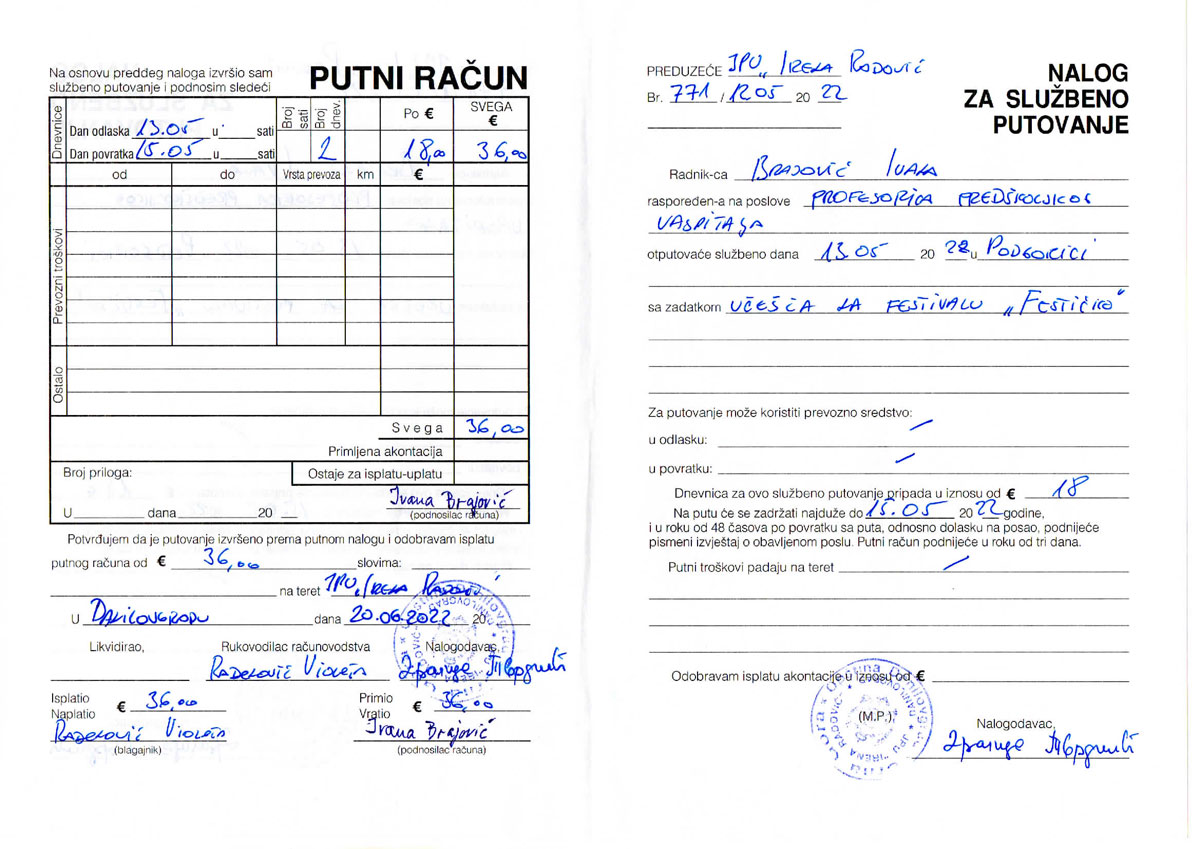 Na osnovu preddeg naloga izvršio sam
službeno putovanje i podnosim sledeći
PUTNI RAČUN
Dnevnice
Dan odlaska 13.05 u sati
Dan povratka 15.05 u sati
Broj sati
Broj dnev.
2
Po €
18,00
SVEGA
€
36,00
od do Vrsta prevoza km €
Prevozni troškovi
Ostalo
Svega 36,00
Primljena akontacija
Broj priloga: Ostaje za isplatu-uplatu
Ivana Brajović
U dana 20 (podnosilac računa)
Potvrđujem da je putovanje izvršeno prema putnom nalogu i odobravam isplatu
putnog računa od € 36,00 slovima:
na teret JPU „Irena Radović
U DANILOVGRADU dana 20.06.2022 20
Likvidirao, Rukovodilac računovodstva Nalogodavac,
RADELOVIĆ VIOLETA
Isplatio
Naplatio € 36,00
Primio
Vratio € 36,00
RADELOVIĆ VIOLETA Ivana Brajović
(blagajnik) (podnosilac računa)
PREDUZEĆE JPU „Irena Radović
Br. 771 / 12 05 20 22
NALOG
ZA SLUŽBENO
PUTOVANJE
Radnik-ca BRAJOVIĆ IVANA
raspoređen-a na poslove PROFESORICA PREDŠKOLSKOG
VASPITANJA
otputovaće službeno dana 13.05 20 22 u PODGORICI
sa zadatkom UČEŠĆA NA FESTIVALU „FESTIĆKO“
Za putovanje može koristiti prevozno sredstvo:
u odlasku:
u povratku:
Dnevnica za ovo službeno putovanje pripada u iznosu od € 18
Na putu će se zadržati najduže do 15.05 20 22 godine,
i u roku od 48 časova po povratku sa puta, odnosno dolasku na posao, podnijeće
pismeni izvještaj o obavljenom poslu. Putni račun podnijeće u roku od tri dana.
Putni troškovi padaju na teret
Odobravam isplatu akontacije u iznosu od €
(M.P.)
Nalogodavac,